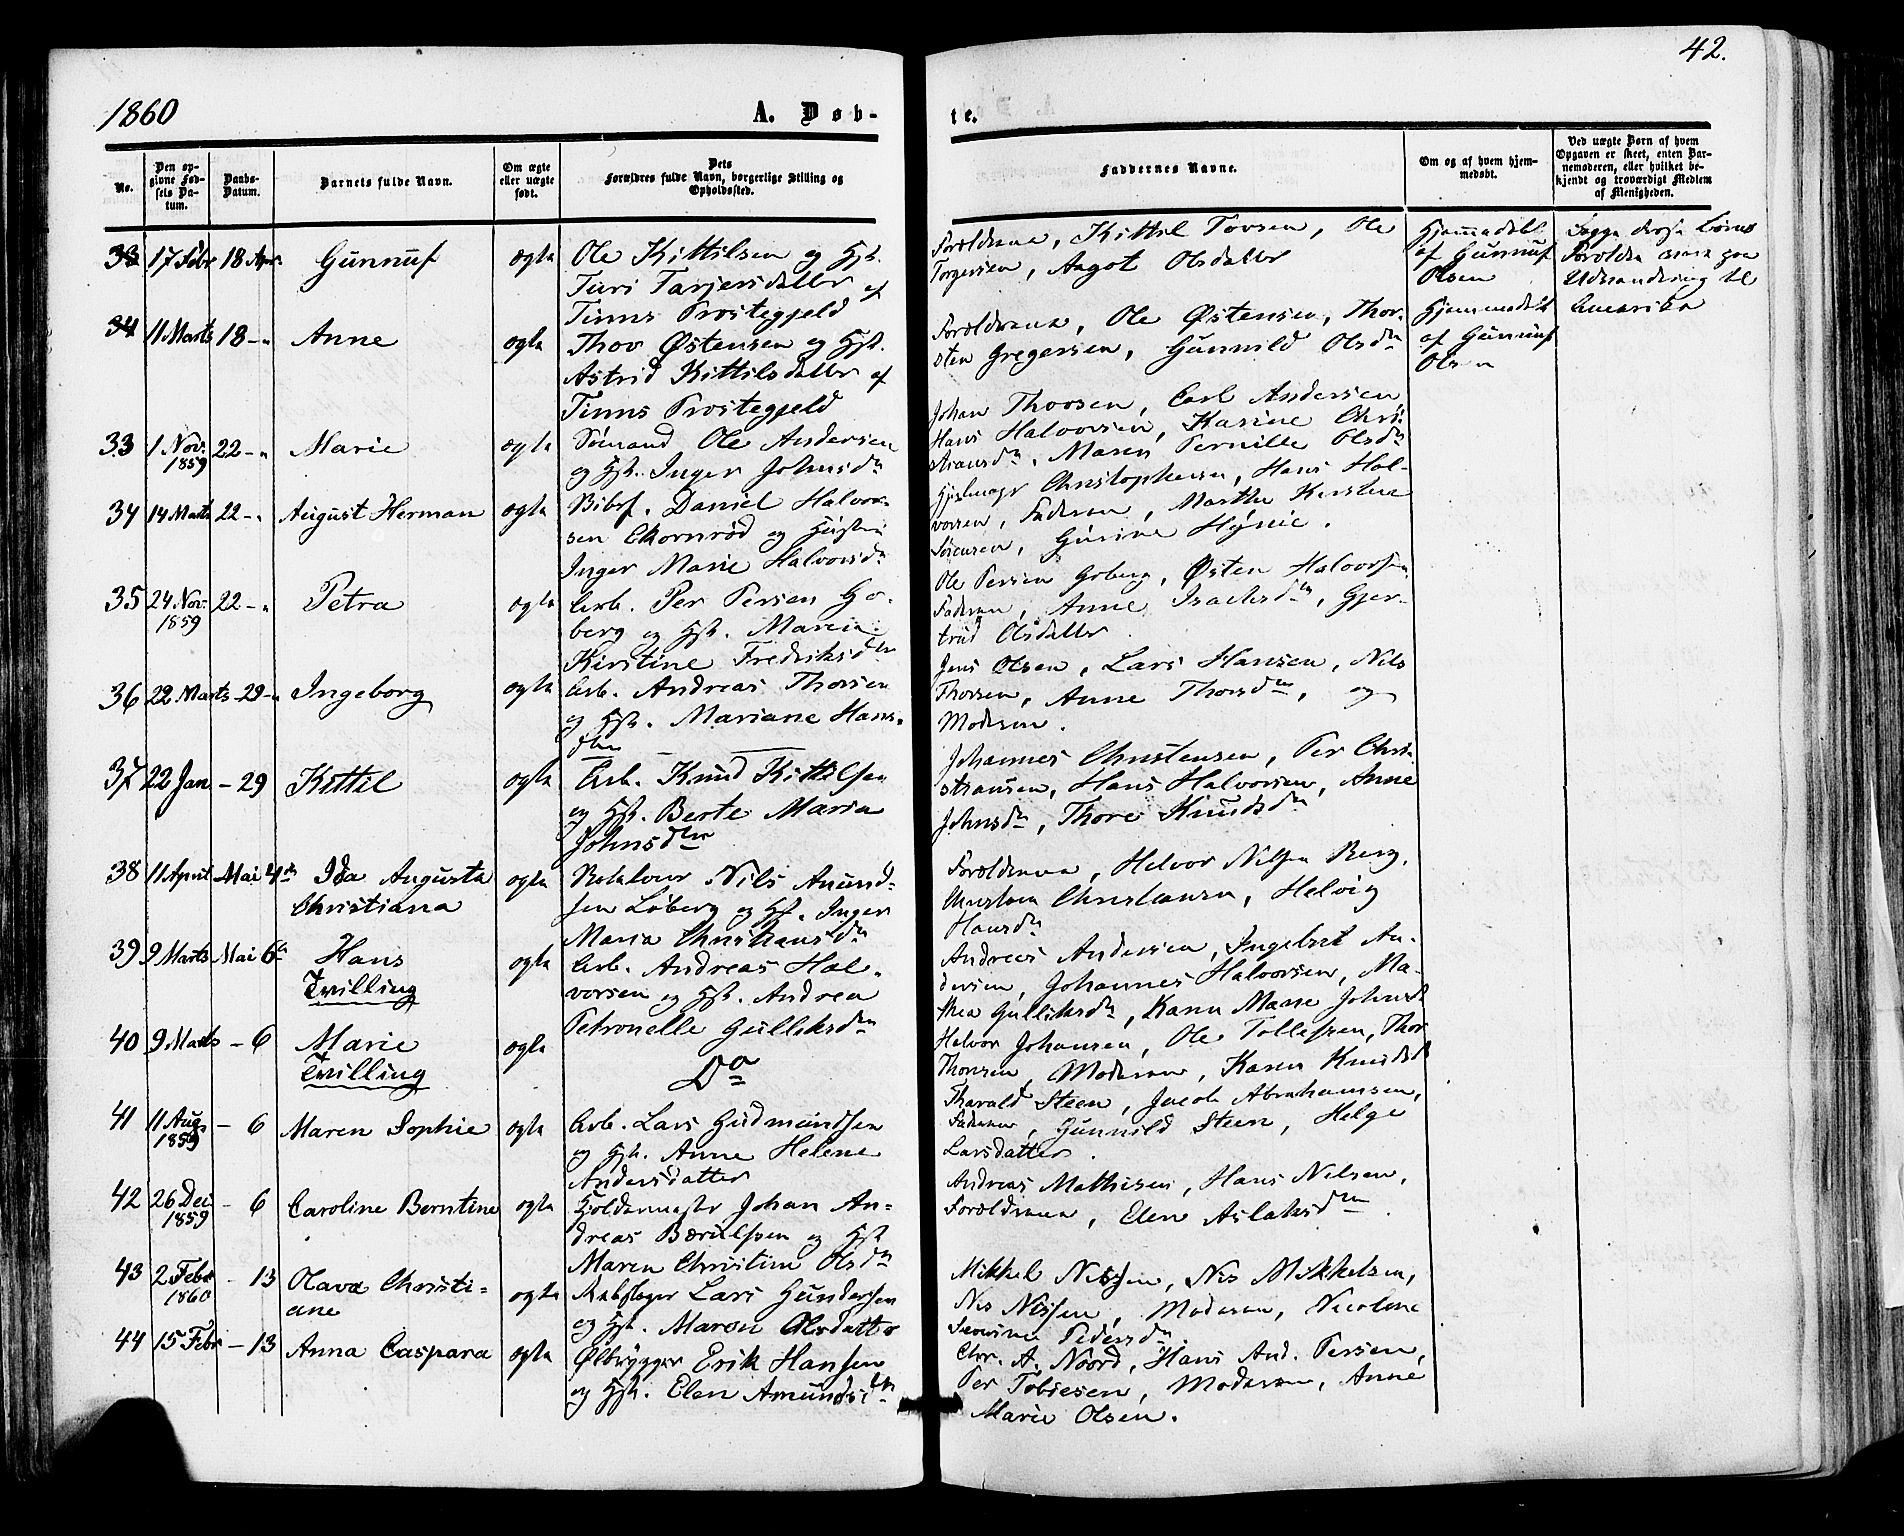 42.
1860
A. Døb-
te.
No.
Den op-
givne Fød-
sels Da-
tum.
Daabs-
Datum.
Barnets fulde Navn.
Om ægte
eller uægte
født.
Dets
Forældres fulde Navn, borgerlige Stilling og
Opholdssted.
Faddernes Navne.
Om og af hvem hjem-
medøbt.
Ved uægte Børn af hvem
Opgaven er skeet, enten Bar-
nemoderen, eller hvilket be-
kjendt og troværdigt Medlem
af Menigheden.
33 17 Febr 18 Apr Gunnuf ægte Ole Kittilsen og Hst.
Turi Tarjersdatter af
Tinns Prestegjeld
Forældrene, Kittil Tovsen, Ole
Torgersen, Aagot Olsdatter
Hjemmedøbt
af Gunnuf
Olsen
Begge disse Børns
Forældre ere paa
Udvandring til
Amerika
34 11 Marts 18 -" Anne ægte Thov Østensen og Hst.
Astrid Kittilsdatter af
Tinns Prestegjeld
Forældrene, Ole Østensen, Thor-
sten Gregersen, Gunnild Olsdtr
Hjemmedøbt
af Gunnuf
Olsen
33 1 Nov. 1859 22 -" Marie ægte Sømand Ole Andersen
og Hst. Inger Johnsdtr
Johan Thovsen, Carl Andersen,
Hans Halvorsen, Karine Chri-
stiansdtr, Maren Pernille Olsdtr
34 14 Marts 22 -" August Herman ægte Bibsf. Daniel Halvor-
sen Ekornrød og Hustru
Inger Marie Halvorsdtr
Christophersen, Hans Hal-
vorsen, Faderen, Marthe Kirstine
Sørensen, Gurine
35 24 Nov. 1859 22 -" Petra ægte Arb. Per Persen Go-
berg og Hst. Maren
Kirstine Fredriksdtr
Ole Persen Goberg, Østen Halvorsen,
Faderen, Anne Isachsdtr, Gjer-
trud Olsdatter.
36 22 Marts -29 -" Ingeborg ægte Arb. Andreas Thovsen
og Hst. Mariane Hans-
dtr
Jens Olsen, Lars Hansen, Nils
Thovsen, Anne Thovsdtr, og
Moderen.
37 22 Jan -29 Kittil ægte Arb. Knud Kittilsen
og Hst. Berte Maria
Johnsdtr
Johannes Christensen, Per Chri-
stiansen, Hans Halvorsen, Anne
Johnsdtr, Thore Knudsdtr
38 11 April Mai 4de Ida Augusta
Christiana ægte Nils Amund-
sen Løberg og Hst. Inger
Maria Christiansdtr
Forældrene, Helvor Nilsen Berg,
Christen Christiansen, Helvig
Hansdtr
39 9 Marts Mai 6te Hans
Tvilling ægte Arb. Andreas Hal-
vorsen og Hst. Andrea
Petronelle Gulliksdtr
Andreas Andersen, Ingebret An-
dersen, Johannes Halvorsen, Ma-
thea Gulliksdtr, Karen Marie Johnsdtr
40 9 Marts - 6 Marie
Tvilling ægte Do
Helvor Johansen, Ole Tollefsen, Thor
Thorsen, Moderen, Karen Knudsdtr
41 11 Aug. 1859 - 6 Maren Sophie ægte Arb. Lars Gudmundsen
og Hst. Anne Helene
Andersdatter
Tharald Steen, Jacob Abrahamsen,
Faderen, Gunnild Steen, Helge
Larsdatter.
42 26 Dec 1859 - 6 Caroline Berntine ægte Johan An-
dreas Bærulfsen og Hst
Maren Christine Olsdtr
Andreas Mathisen, Hans Nilsen,
Forældrene, Elen Aslaksdtr.
43 2 Febr 1860 - 13 Olava Christi-
ane ægte Rebslager Lars Gundersen
og Hst. Maren Olsdatter
Mikkel Nissen, Nis Mikkelsen,
Nis Nissen, Moderen, Nicoline
Severine Pedersdtr
44 15 Febr - 13 Anna Caspara ægte Ølbrygger Erik Hansen
og Hst. Elen Amundsdtr
Chr. A. Noord, Hans And. Persen,
Per Tobiesen, Moderen, Anne
Marie Olsen.